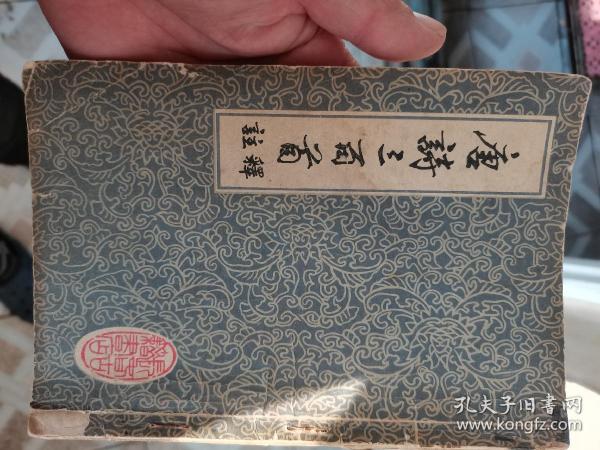 唐詩三百首
註釋
孔夫子旧书网
www.kongfz.com